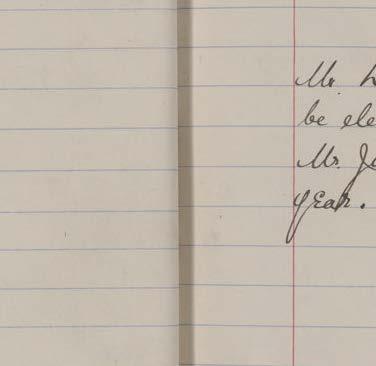 Mr.
be ele
Mr. Ja
year.